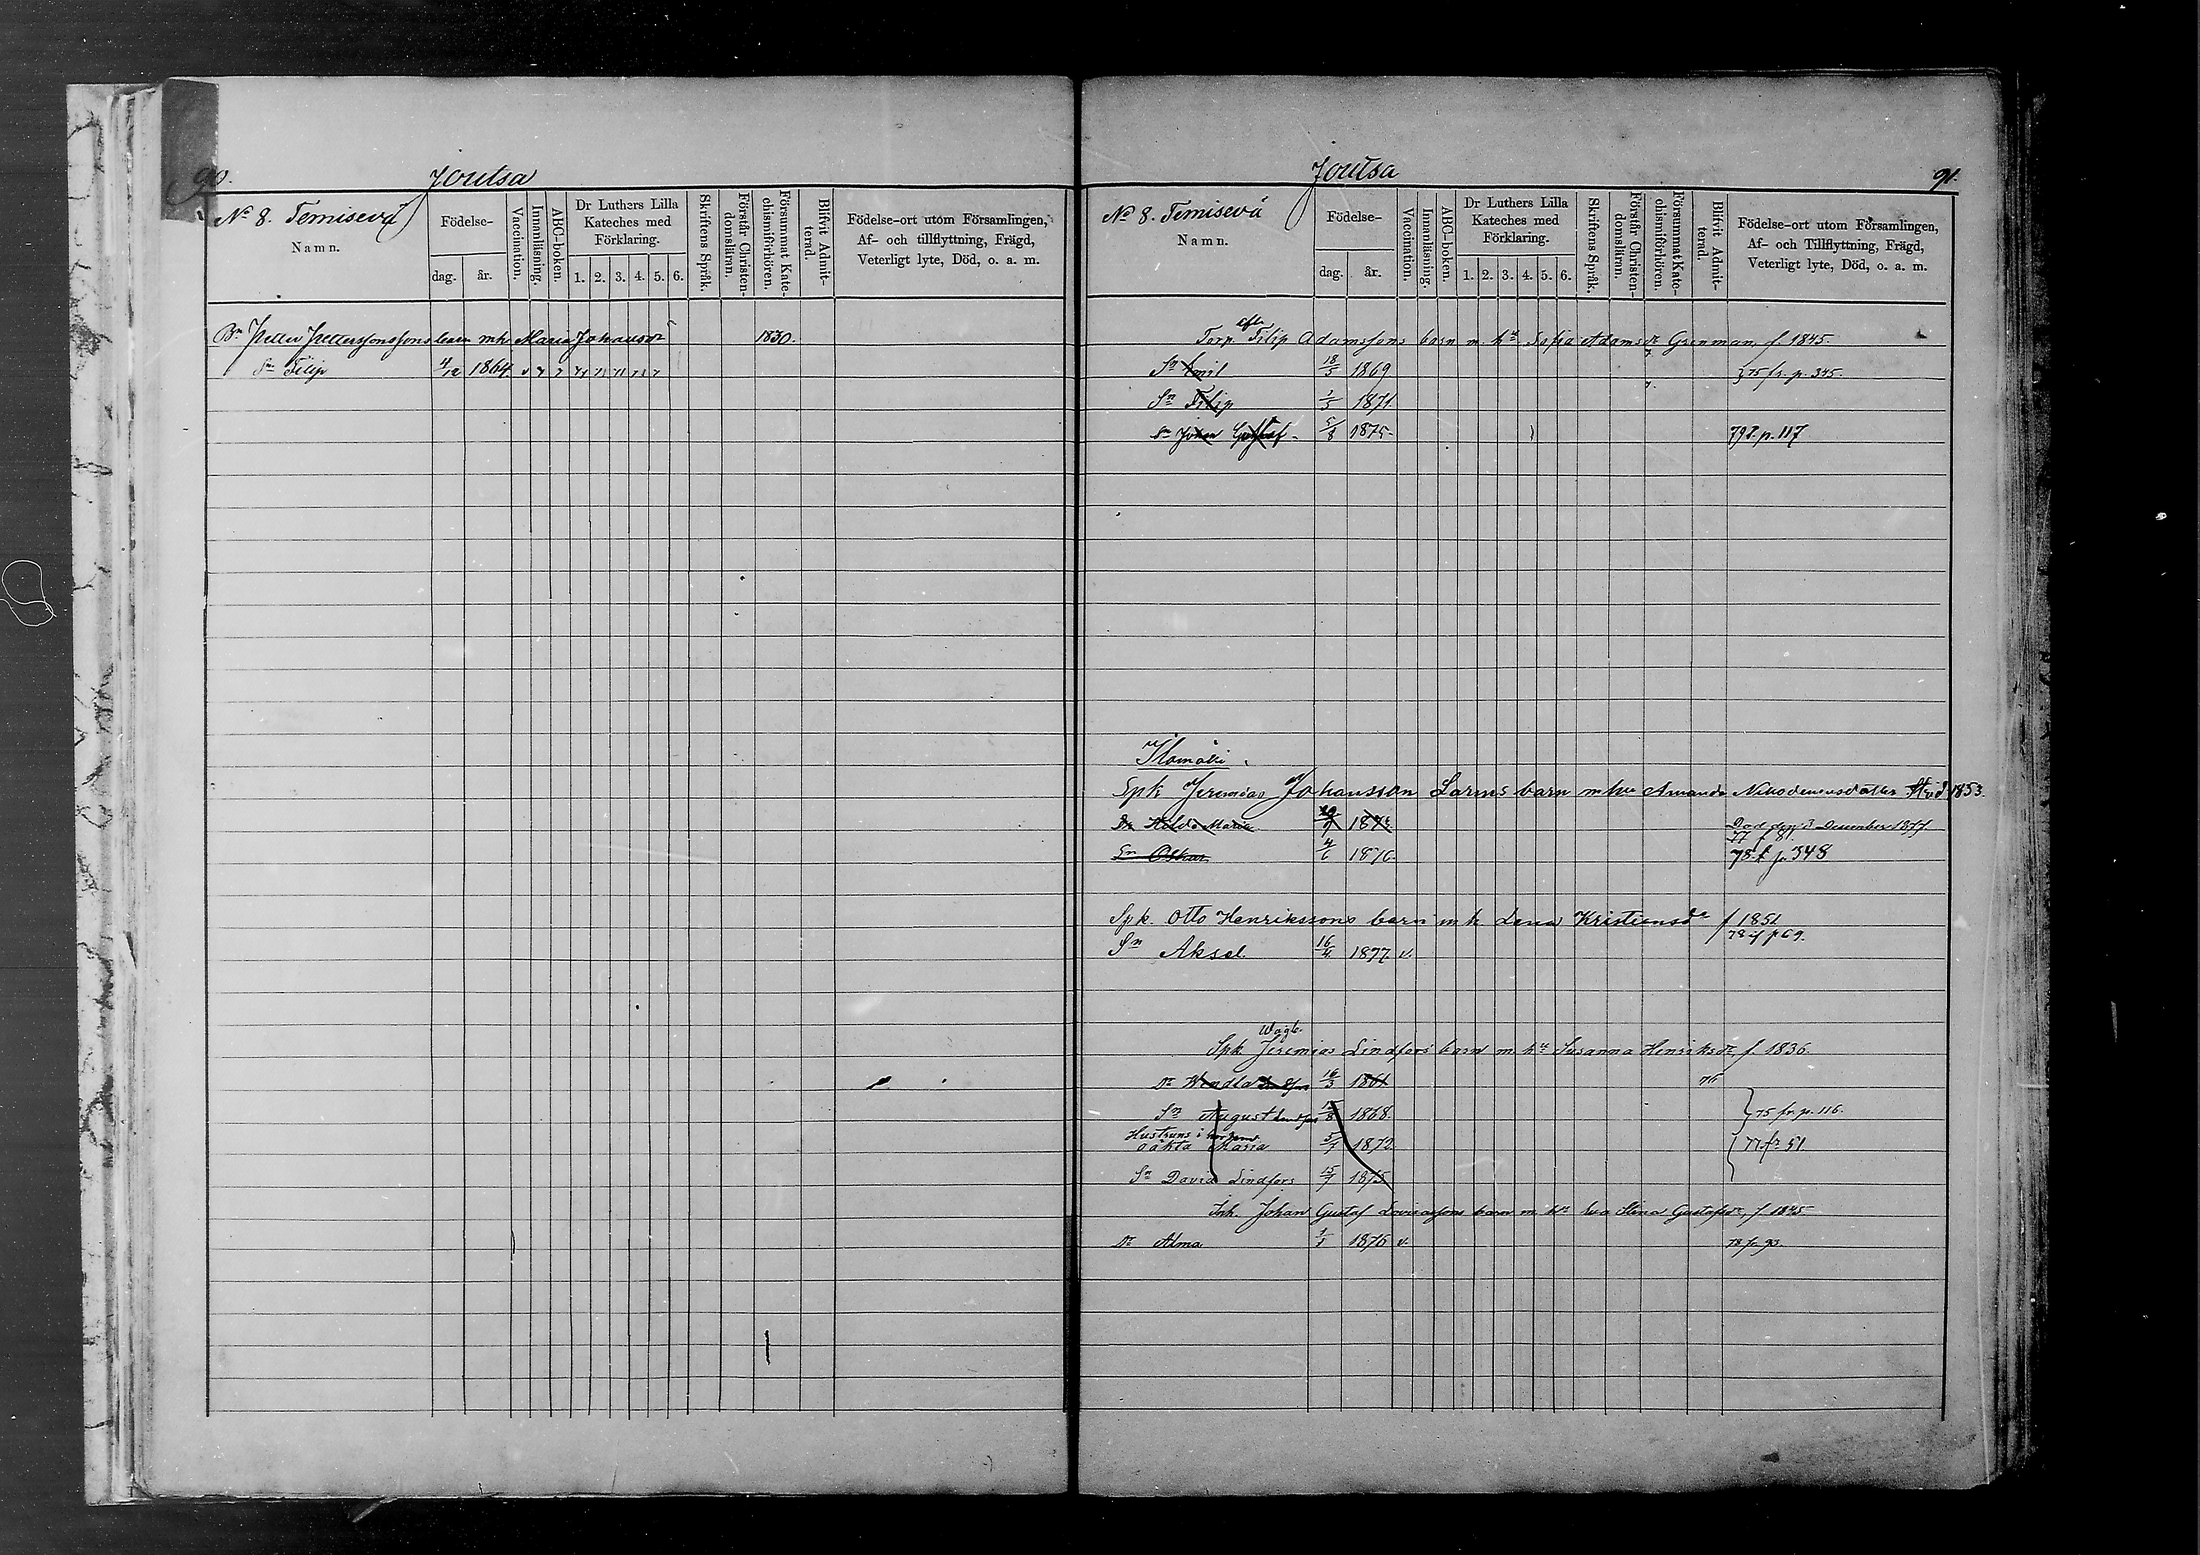 90.
Joutsa
No 8. Temisevä
Namn.
Födelse-
dag.
år.
Vaccination.
Innanläsning.
ABC-boken.
Dr Luthers Lilla
Kateches med
Förklaring.
1. 2. 3. 4. 5. 6.
Skriftens Språk.
Förstår Christen-
domsläran.
Försummat Kate-
chismiförhören.
Blifvit Admit-
terad.
Födelse-ort utom Församlingen,
Af- och tillflyttning, Frägd,
Veterligt lyte, Död, o. a. m.
Bn Petter Petterssons barn m h Maria Johansdr 1830.
Sn Filip 4/12 1864.
Joutsa
91.
No 8. Temisevä
Namn.
Födelse-
dag.
år.
Vaccination.
Innanläsning.
ABC-boken.
Dr Luthers Lilla
Kateches med
Förklaring.
1. 2. 3. 4. 5. 6.
Skriftens Språk.
Förstår Christen-
domsläran.
Försummat Kate-
chismiförhören.
Blifvit Admit-
terad.
Födelse-ort utom Församlingen,
Af- och Tillflyttning, Frägd,
Veterligt lyte, Död, o. a. m.
Torp. Filip Adamssons barn m. hu Sofia Adamsdr Grenman, f. 1845.
Sn Emil 18/5 1869 75 fr. p. 345.
Sn Filip 1871
Sn Johan Gustaf 5/8 1875 p. 117
Ilomäki
Spk Jeremias Johansson Larms barn m hu Amanda Nikodemusdotter 1853.
Dr Hilda Maria Död den 3 December 1877.
Sn Oskar 4/6 1876 78 f p. 348
Spk. Otto Henrikssons barn m h Lena Kristiansdr f 1851
78 if p 69.
Sn Aksel. 16/4 1877 v.
Spk Jeremias Lindfors barn m. hu Susanna Henriksdr f. 1836.
Dr Wendla 16/3 1861 76
Sn August 1868 75 fr. p. 116.
Hustruns i
oäkta Maria 5/7 1872 77 fr 51
Sn David Lindfors 15/7 1875
Inh. Johan Gustaf Lovisassons barn m. hu Eva Stina Gustafsdr, f. 1845
Dr Alma 1/1 1876 v. 78 fr. 93.